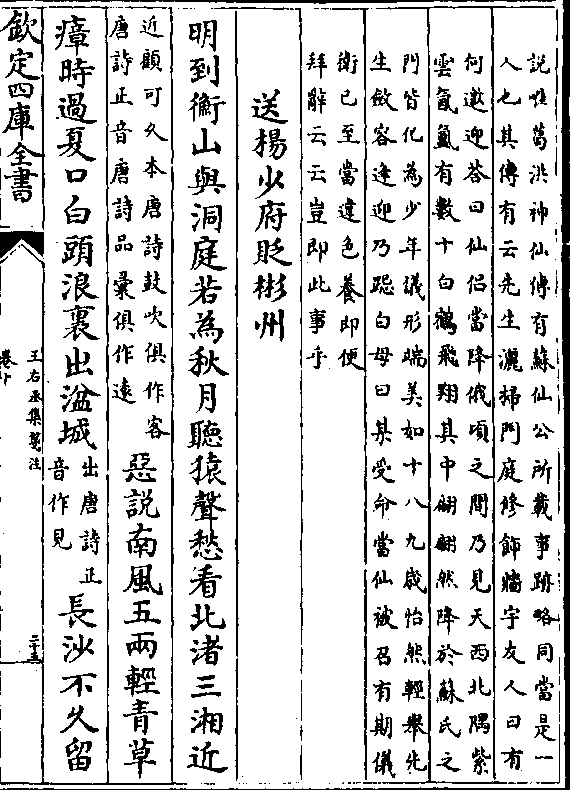 說惟葛洪神仙傳有蘇仙公所載事跡略同當是一
人也其傳有云先生灑掃門庭修飾牆宇友人曰有
何邀迎荅曰仙侶當降俄頃之間乃見天西北隅紫
雲氤氳有數十白鶴飛翔其中翩翩然降於蘇氏之
門皆化為少年儀形端美如十八九歲怡然輕舉先
生斂容逢迎乃跪白母曰某受命當仙被召有期儀
衛已至當違色養即便
拜辭云云豈即此事乎
送楊少府貶郴州
明到衡山與洞庭若為秋月聽猿聲愁看北渚三湘近
近顧可久本唐詩鼓吹俱作客
唐詩正音唐詩品彙俱作遠
惡說南風五兩輕青草
瘴時過夏口白頭浪裏出湓城
出唐詩正
音作見
長沙不久留
欽定四庫全書
王右丞集箋注
卷十
二十五